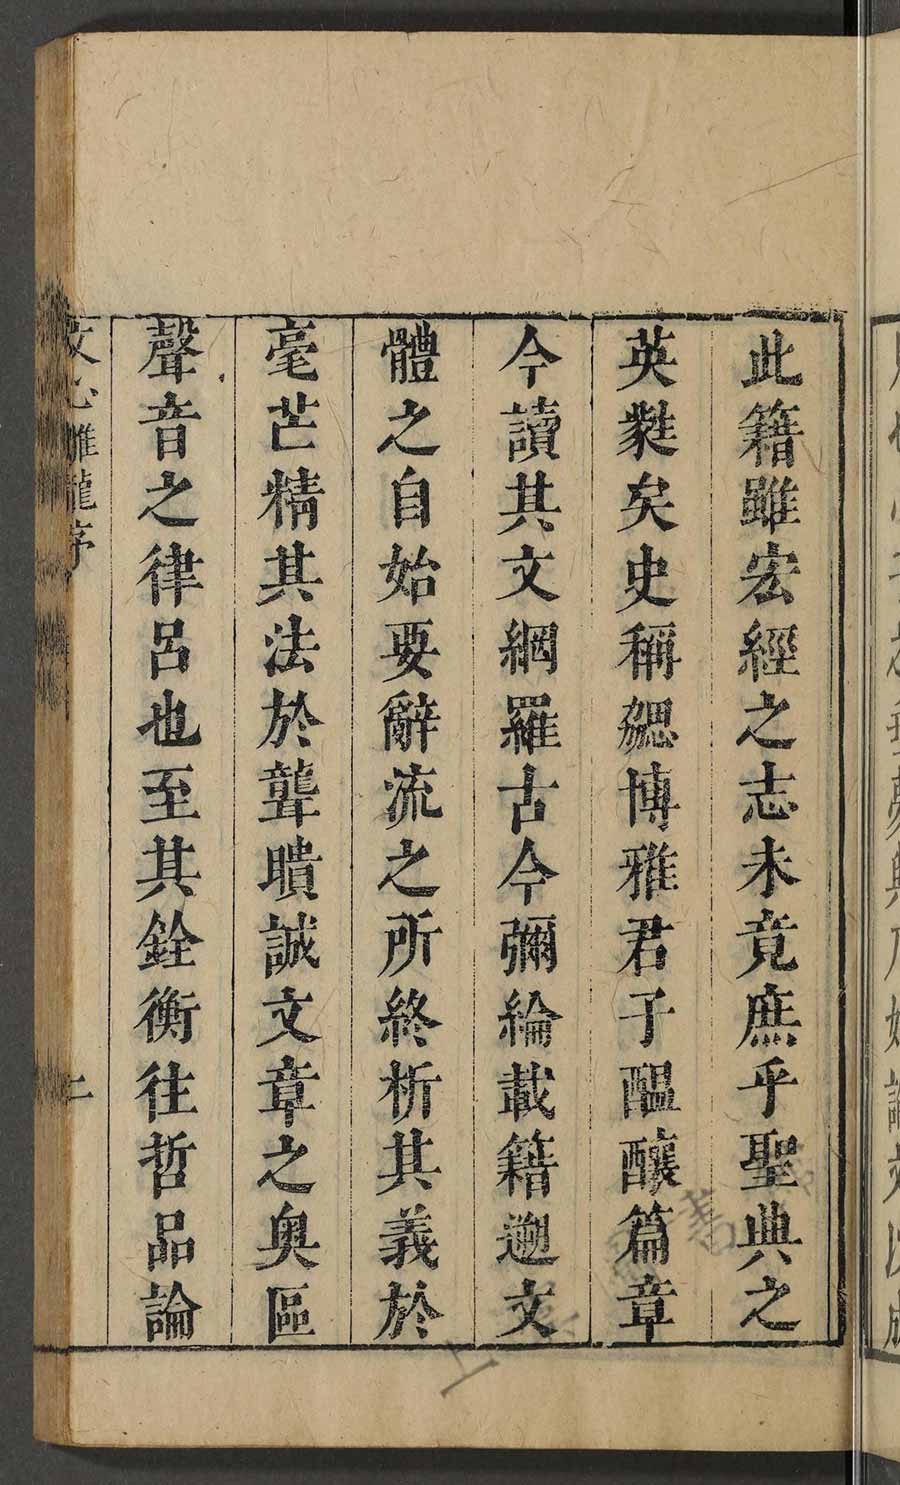 此籍雖宏經之志未竟庶乎聖典之
英蕤矣史稱勰博雅君子醖釀篇章
今讀其文網羅古今彌綸載籍遡文
體之自始要辭流之所終析其義於
毫芒精其法於聾聵誠文章之奥區
聲音之律呂也至其銓衡往哲品論
文心雕龍序